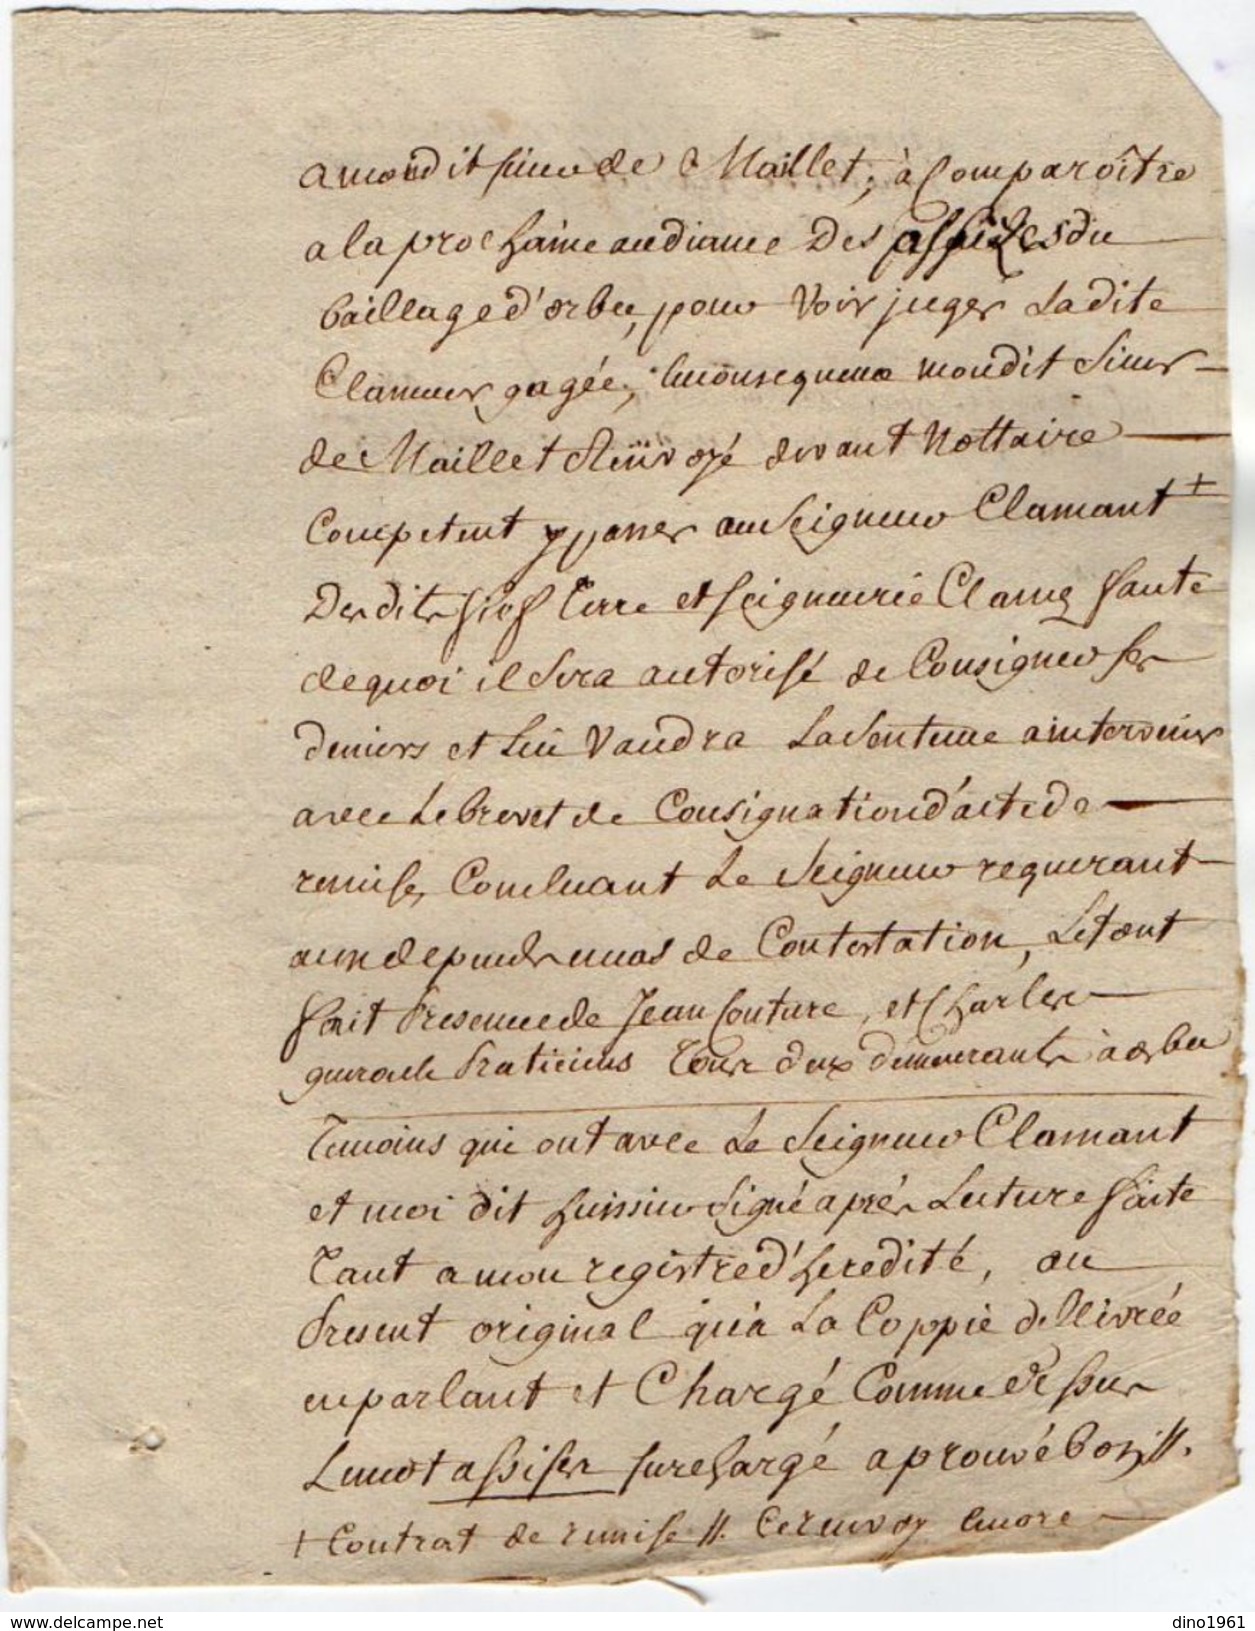 a mondit sieur de Maillet, à Comparoître
a la prochaine audiance Des assizes du
baillage d'orbec, pour Voir juger Ladite
Clameur gagée, En Consequence mondit Sieur
de Maillet Envoyé devant Nottaire
Competent y passer au Seigneur Clamant +
Desdits fief terre et seigneurie Clamés faute
de quoi il Sera autorisé de Consigner ses
deniers et Lui Vaudra La Sentence a intervenir
avec Le brevet de Consignation d'acte de
remise, Concluant Le Seigneur requerant
aux depends en cas de Contestation, Le tout
fait Presence de Jean Couture, et Charles
Praticiens Tous deux demeurants à orbec
Temoins qui ont avec Le Seigneur Clamant
et moi dit huissier Signé aprés Lecture faite
Tant a mon registre d'heredité, au
Present original qu'a La Coppie dellivrée
en parlant et Chargé Comme dessus
Le mot assises surchargé aprouvé bon //.
+ Contrat de remise //. Ce renvoy encore
dino1961